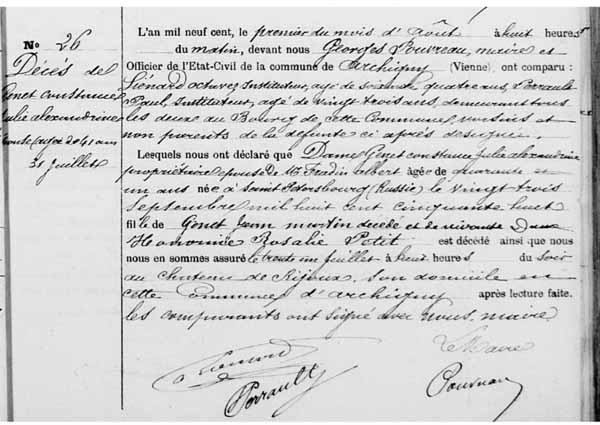 No 26
Décès de
Genet constance
Julie alexandrine
épouse âgée de 41 ans
31 Juillet
L'an mil neuf cent, le premier du mois d'Août à huit heures
du matin, devant nous Georges Pouvreau, maire et
Officier de l'Etat-Civil de la commune de Archigny (Vienne), ont comparu :
Liénard octave, Instituteur, âgé de soixante quatre ans, Perrault
Paul, Instituteur, agé de Vingt trois ans, demeurant tous
les deux au Bourg de cette Commune, voisins et
non parents de la défunte ci après désignée.
Lesquels nous ont déclaré que Dame Genet constance Julie alexandrine
propriétaire épouse de Mr Fradin albert âgée de quarante et
un ans née à Saint Petersbourg (Russie) le Vingt-trois
Septembre mil huit cent cinquante huit
fille de Genet Jean martin décédé et de vivante Dame
Honorine Rosalie Petit est décédé ainsi que nous
nous en sommes assuré le trente un Juillet à huit heures du soir
au Chateau de son domicile en
cette Commune d'archigny après lecture faite.
les comparants ont signé avec nous, maire
Lienard
Perrault
Le Maire
Pouvreau